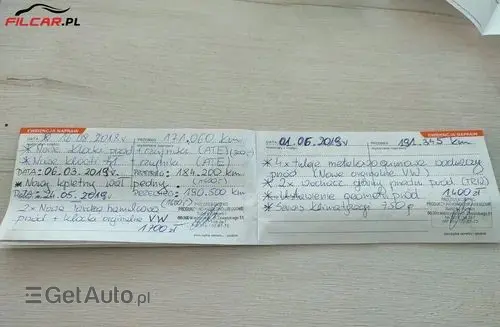 FILCAR.PL
EWIDENCJA NAPRAW
DATA 16.08.2018r. PRZEBIEG 171.060 km
* Nowe klocki przód + czujnik (ATE)
* Nowe klocki tył + czujnik (ATE)
DATA: 06.03.2019r. PRZEBIEG: 184.200 km
* Nowy kpletny wał pędny.
DATA: 24.05.2019. PRZEBIEG: 190.500 km
2x Nowe tarcze hamulcowe
przód + klocki orginalne VW
1700 zł
EWIDENCJA NAPRAW
DATA 01.06.2019r PRZEBIEG 191.345 km
* 4x tuleje metalowo gumowe
przód (Nowe orginalne VW)
* 2x wachacz przód (TRW)
* Ustawienie geometri przód 1400zł
* Serwis klimatyzacji 750zł
GetAuto.pl